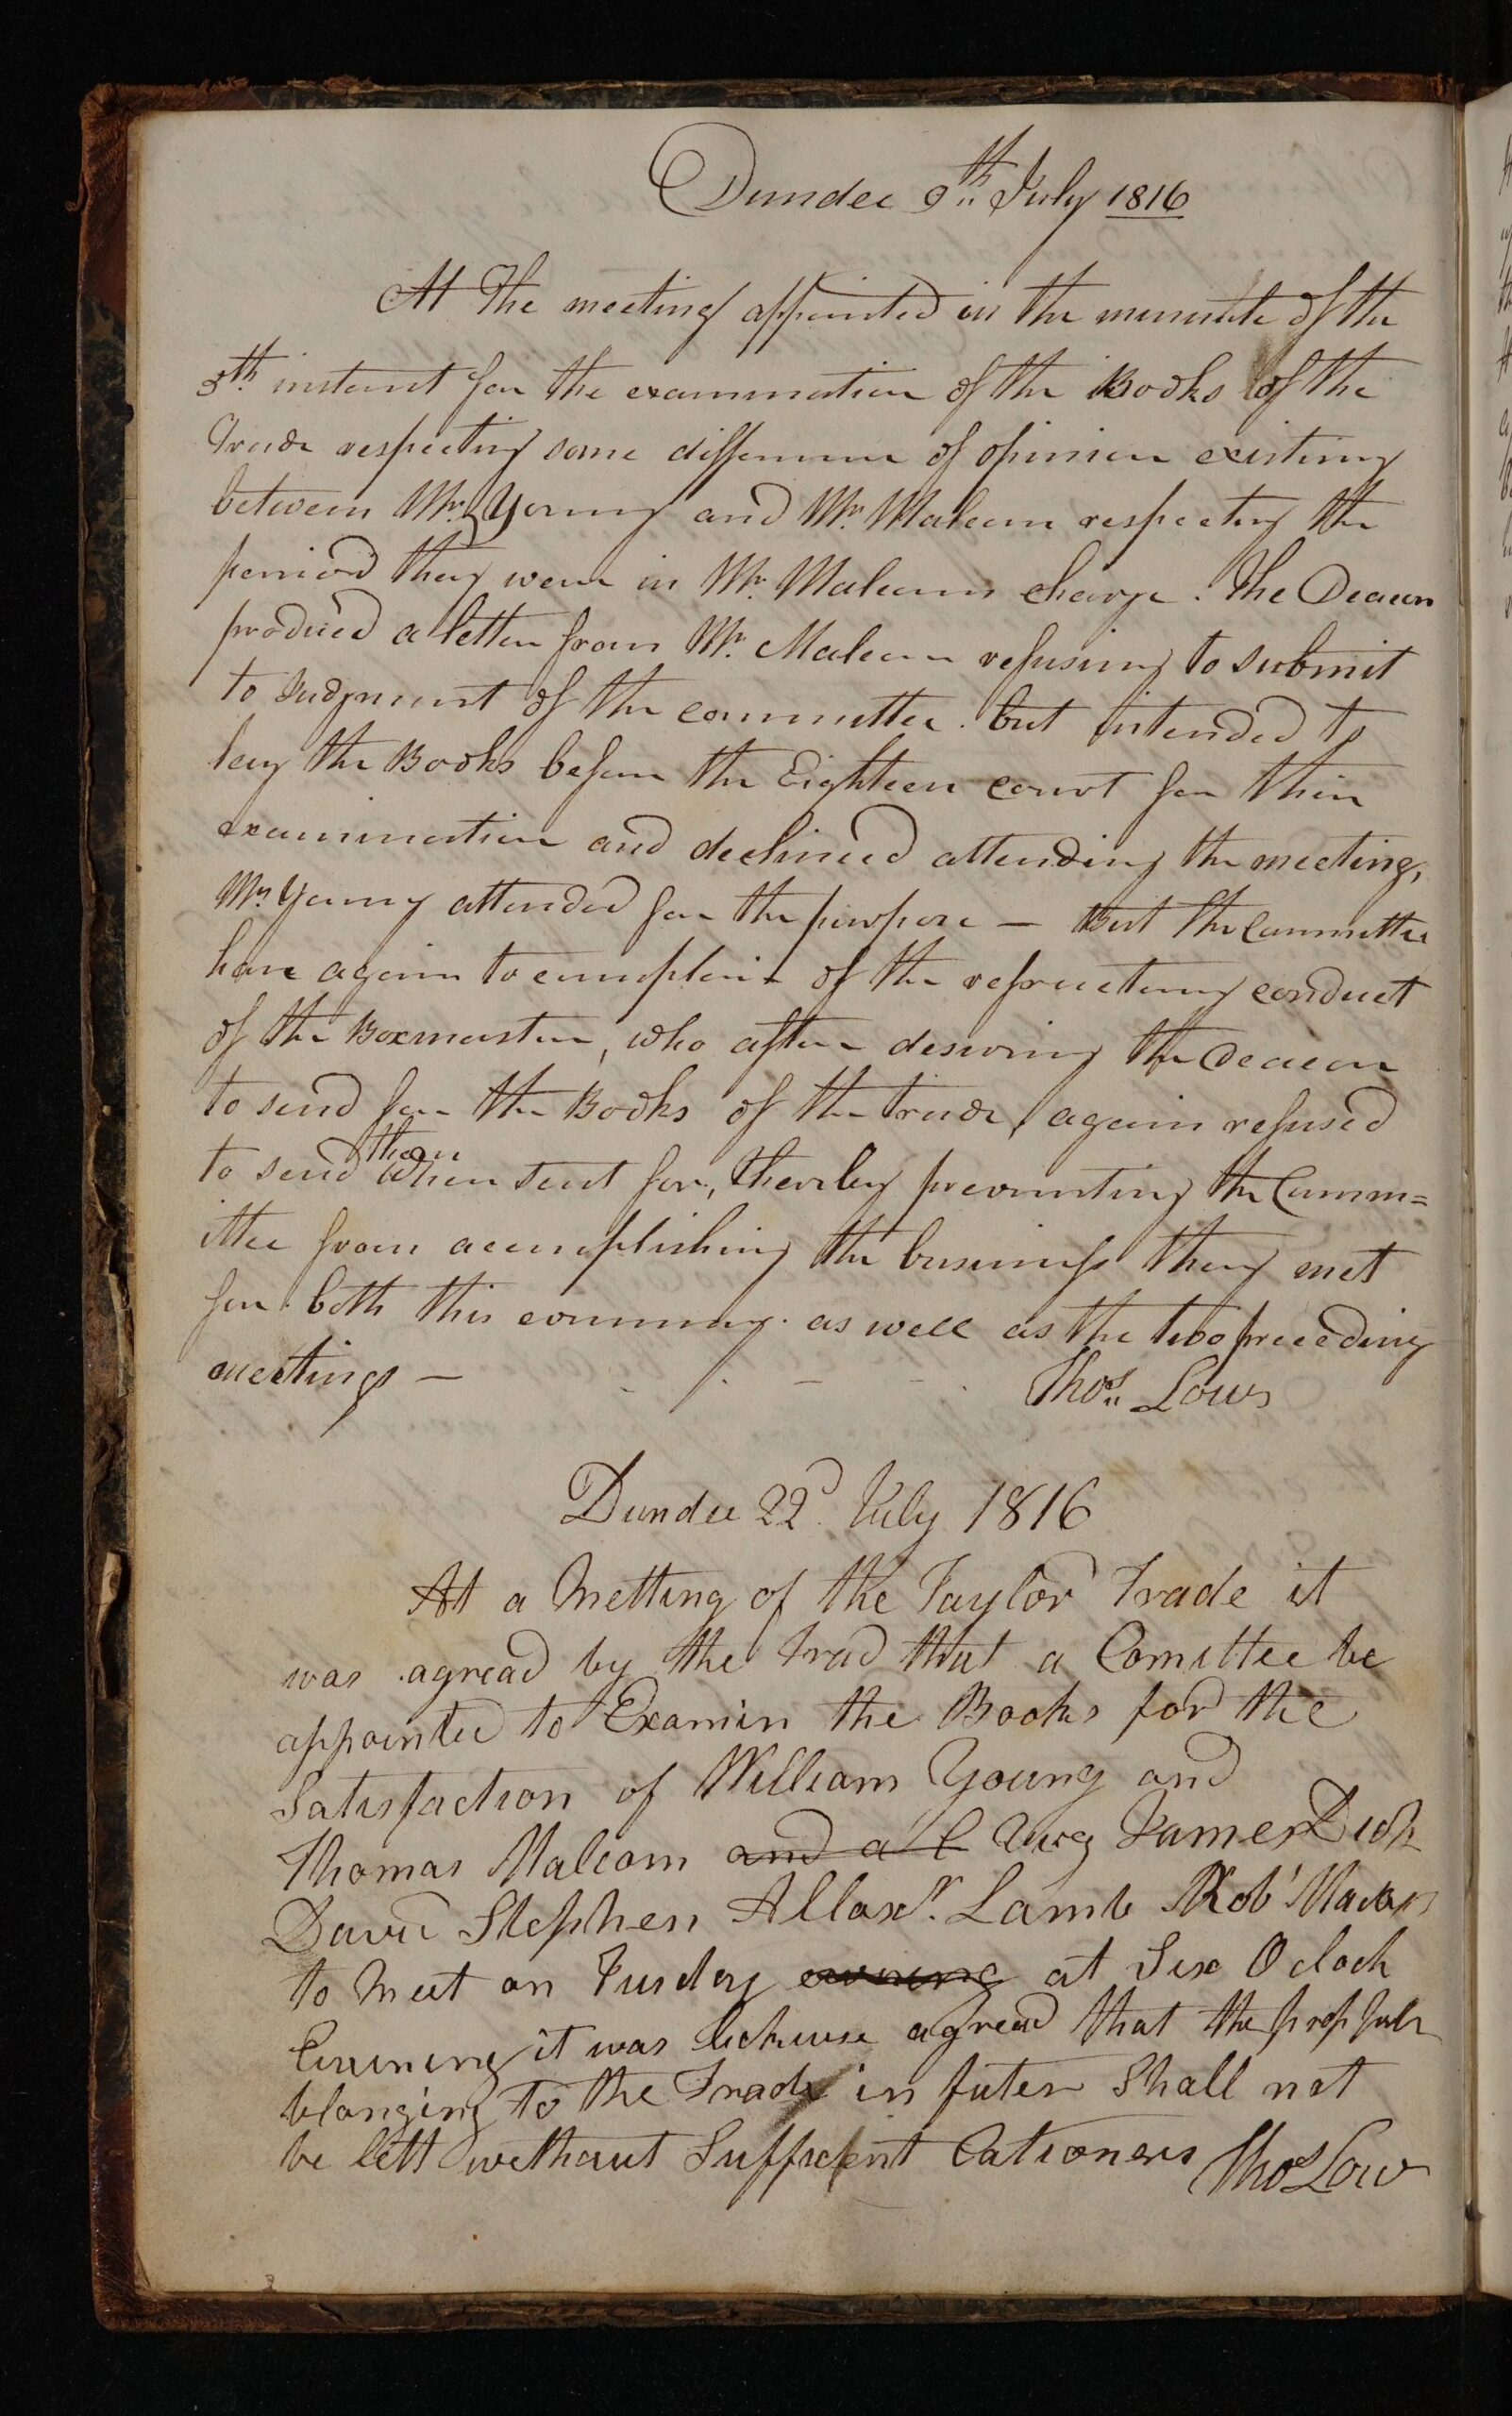 Dundee 9th July 1816
At The meeting appointed in the minute of the
5th instant for the examination of the Books of the
Trade respecting some difference of opinion existing
between Mr Young and Mr Malcom respecting the
period they were in Mr Malcoms charge. The Deacon
produced a letter from Mr Malcom refusing to submit
to Judgment of the committee. but intended to
lay the Books before the Eighteen court for their
examination and declined attending the meeting,
Mr Young attended for the purpose — But the Committee
have again to complain of the refractory conduct
of the Boxmaster, who after desiring the Deacon
to send for the Books of the trade, again refused
to send them when sent for, thereby preventing the Comm=
ittee from accomplishing the business they met
for both this evening. as well as the two preceeding
meetings — Thos Low
Dundee 22d July 1816
At a Metting of the Taylor Trade it
was agread by the Trad that a Comittee be
appointed to Examin the Books for the
Satisfaction of William Young and
Thomas Malcom and a C James Dick
David Stephen Allaxr. Lamb Robt
to Meet on Tusday evening at Six O clock
Evening it was lickwise agread that the
blonging to the Trade in futer Shall not
be lett without Suffident Cationers Thos Low